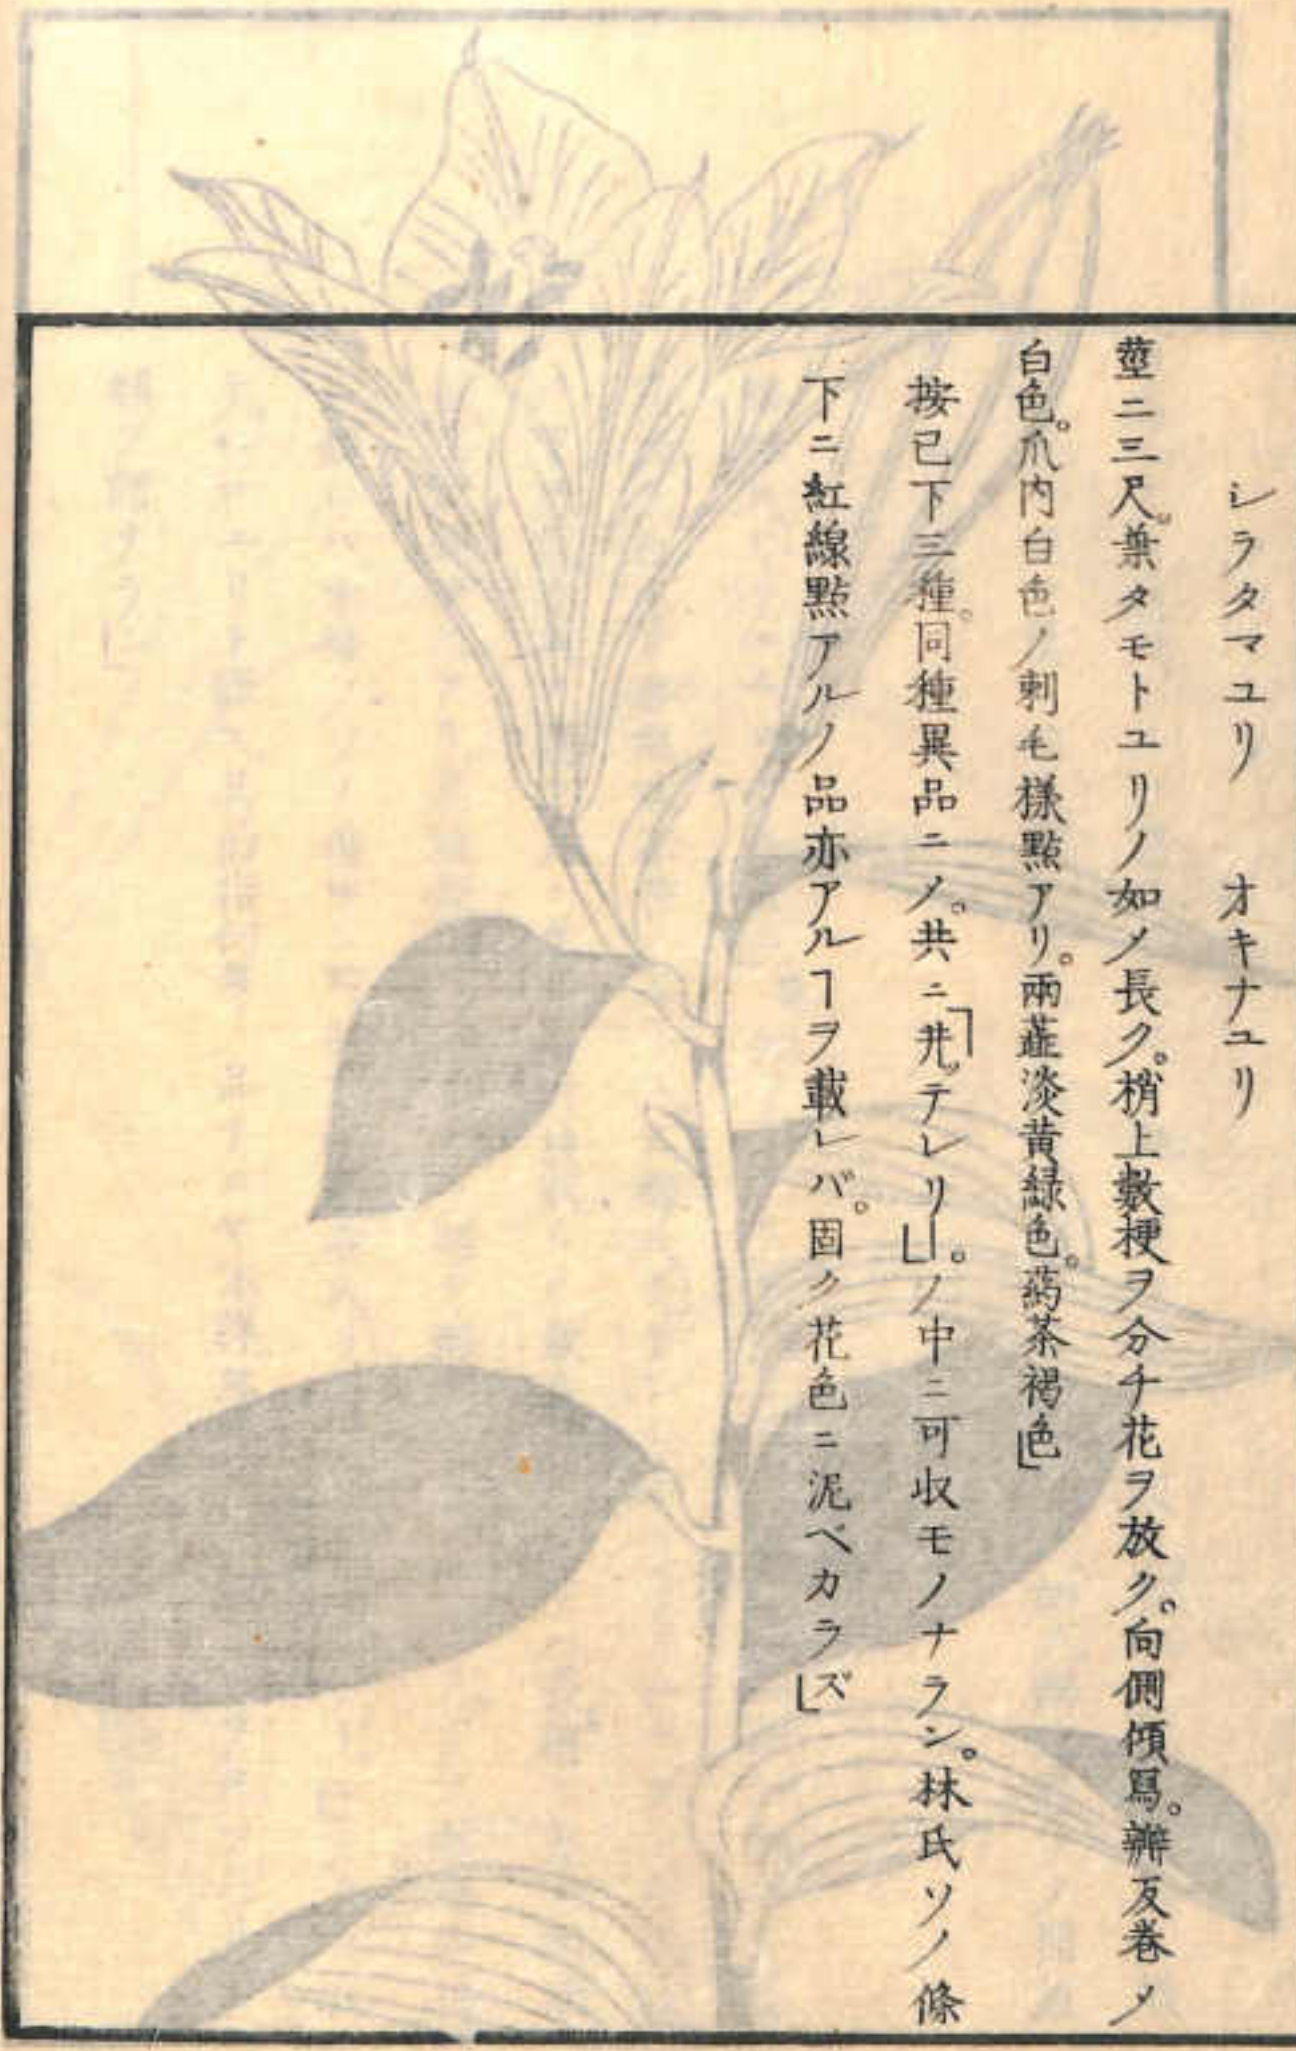 シラタマユリ　オキナユリ
莖二三尺。葉タモトユリノ如〆長ク。梢上數梗ヲ分チ花ヲ放ク。向側傾寫。瓣反卷〆
白色。爪内白色ノ刺毛樣點アリ。兩蘂淡黄緑色。葯茶褐色」
按已下三種。同種異品ニ〆。共ニ「テレリ」。ノ中ニ可收モノナラン。林氏ソノ條
下ニ紅線點アルノ品亦アルヿヲ載レバ。固ク花色ニ泥ベカラズ」